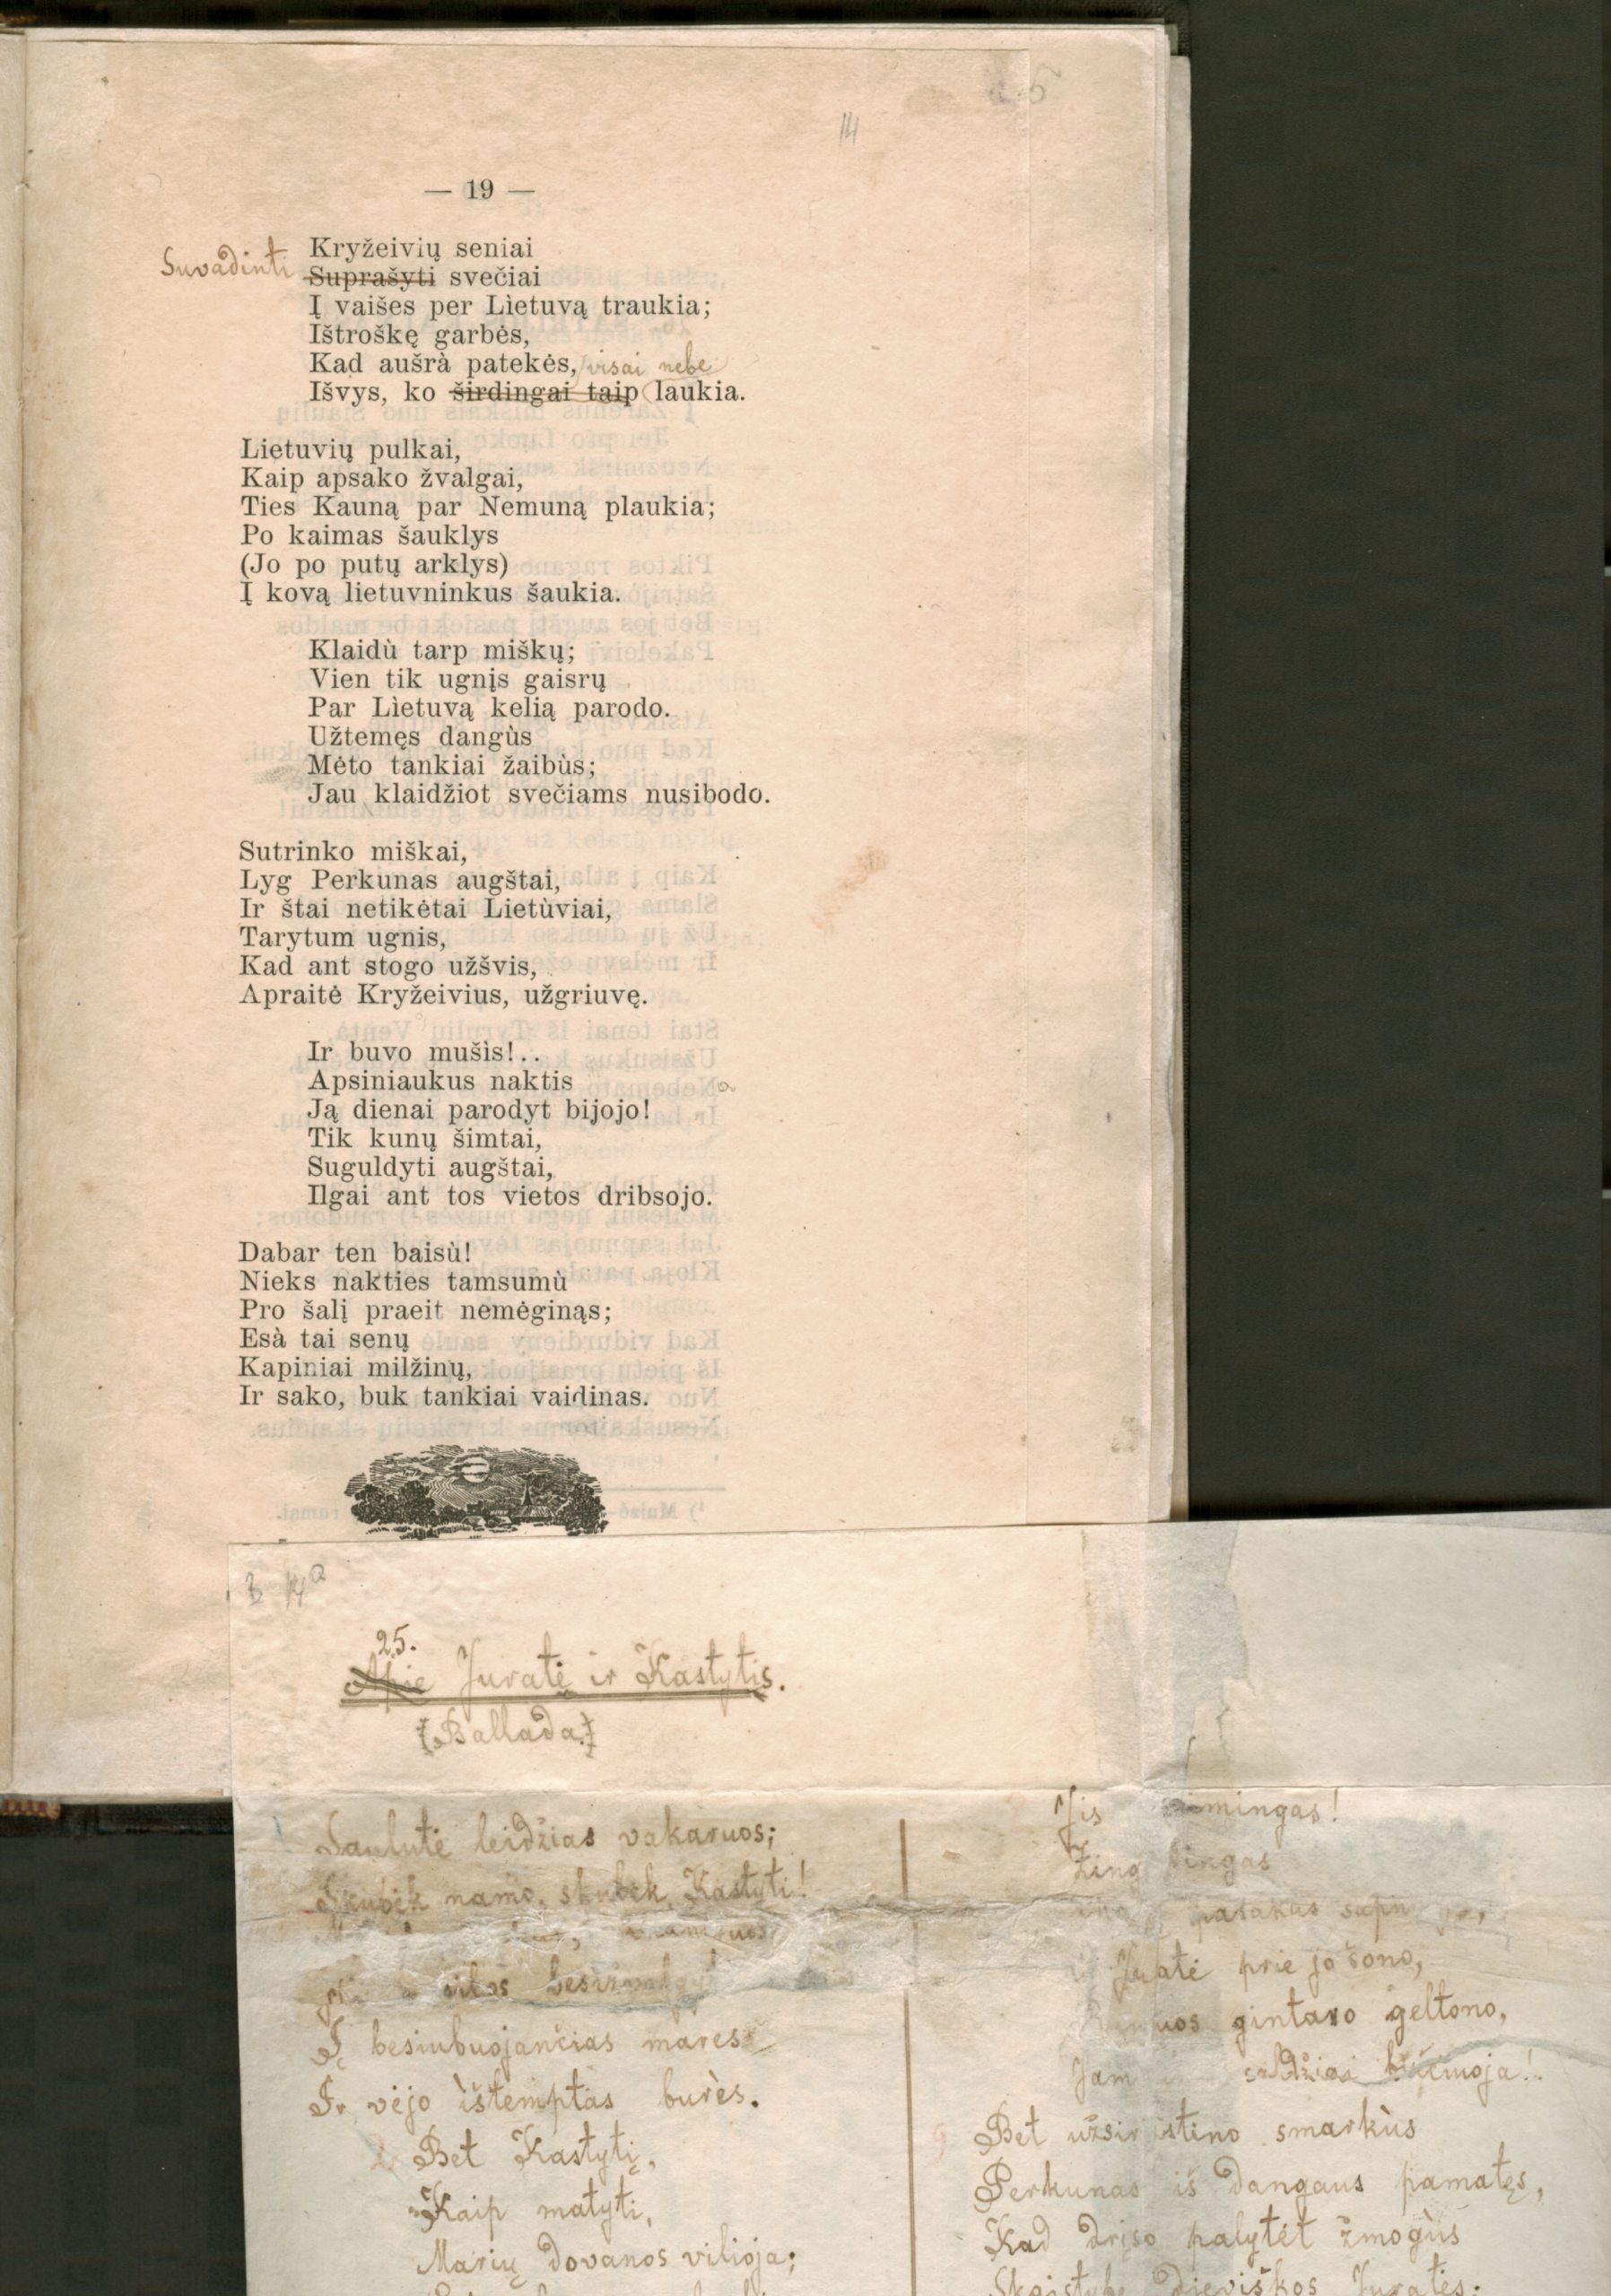 14
— 19 —
Kryžeivių seniai
Suvadinti Suprašyti svečiai
Į vaišes per Lìetuvą traukia;
Ištroškę garbės,
Kad aušrà patekės, visai nebe
Išvys, ko širdingai taip laukia.
Lietuvių pulkai,
Kaip apsako žvalgai,
Ties Kauną par Nemuną plaukia;
Po kaimas šauklys
(Jo po putų arklys)
Į kovą lietuvninkus šaukia.
Klaidù tarp miškų;
Vien tik ugnįs gaisrų
Par Lìetuvą kelią parodo.
Užtemęs dangùs
Mėto tankiai žaibùs;
Jau klaidžiot svečiams nusibodo.
Sutrinko miškai,
Lyg Perkunas augštai,
Ir štai netikėtai Lietùviai,
Tarytum ugnis,
Kad ant stogo užšvis,
Apraitė Kryžeivius, užgriuvę.
Ir buvo mušìs!..
Apsiniaukus naktis
Ją dienai parodyt bijojo!
Tik kunų šimtai,
Suguldyti augštai,
Ilgai ant tos vietos dribsojo.
Dabar ten baisù!
Nieks nakties tamsumù
Pro šalį praeit nemėginąs;
Esà tai senų
Kapiniai milžinų,
Ir sako, buk tankiai vaidinas.
14a
25.
Apie Juratė ir Kastytis.
(Ballada.)
Saulutė leidžias vakaruos;
Skubėk namo, skubėk, Kastyti!
Į besiubuojančias mares
Ir vėjo ištemptas burès.
2. Bet Kastytį,
Kaip matyti,
Marių dovanos vilioja;
Jis
pasakas
prie jo šono,
gintaro geltono,
Jam
9 Bet užsirustino smarkùs
Perkunas iš dangaus pamatęs,
Kad drįso palytėt žmogùs
Skaistybę dieviškos Juratės: